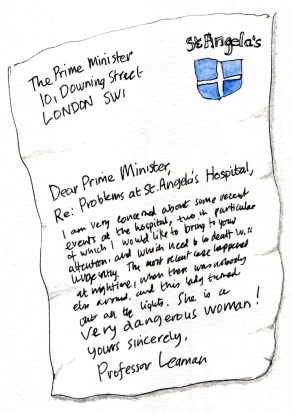 St Angela's
The Prime Minister
10, Downing Street
LONDON SW1
Dear Prime Minister,
Re: Problems at St. Angela's Hospital,
I am very concerned about some recent
events at the hospital, two in particular
of which I would like to bring to your
attention, and which need to be dealt with
urgently. The most recent case happened
at nightime, when there was nobody
else around, and this lady turned
out all the lights. She is a
very dangerous woman!
yours sincerely,
Professor Leaman